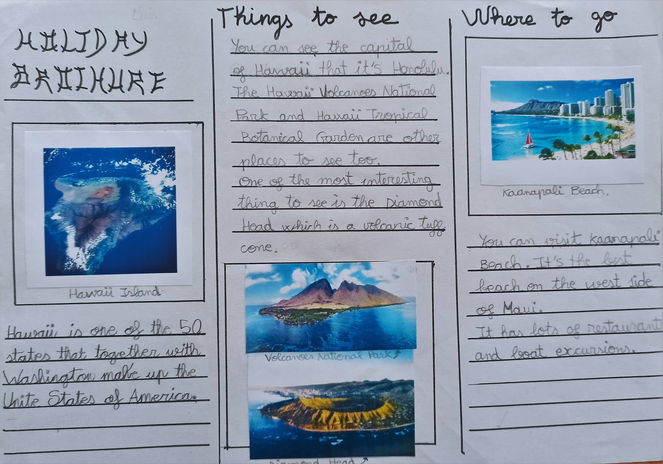 HOLIDAY
BROCHURE
Hawaii Island
Hawaii is one of the 50
states that together with
Washington make up the
Unite States of America.
Things to see
You can see the capital
of Hawaii that it's Honolulu.
The Hawaii Volcanoes National
Park and Hawaii Tropical
Botanical Garden are other
places to see too.
One of the most interesting
thing to see is the Diamond
Head which is a volcanic tuff
cone.
Volcanoes National Park ↑
Diamond Head ↗
Where to go
Kaanapali Beach.
You can visit Kaanapali
Beach. It's the best
beach on the west side
of Maui.
It has lots of restaurant
and boat excursions.